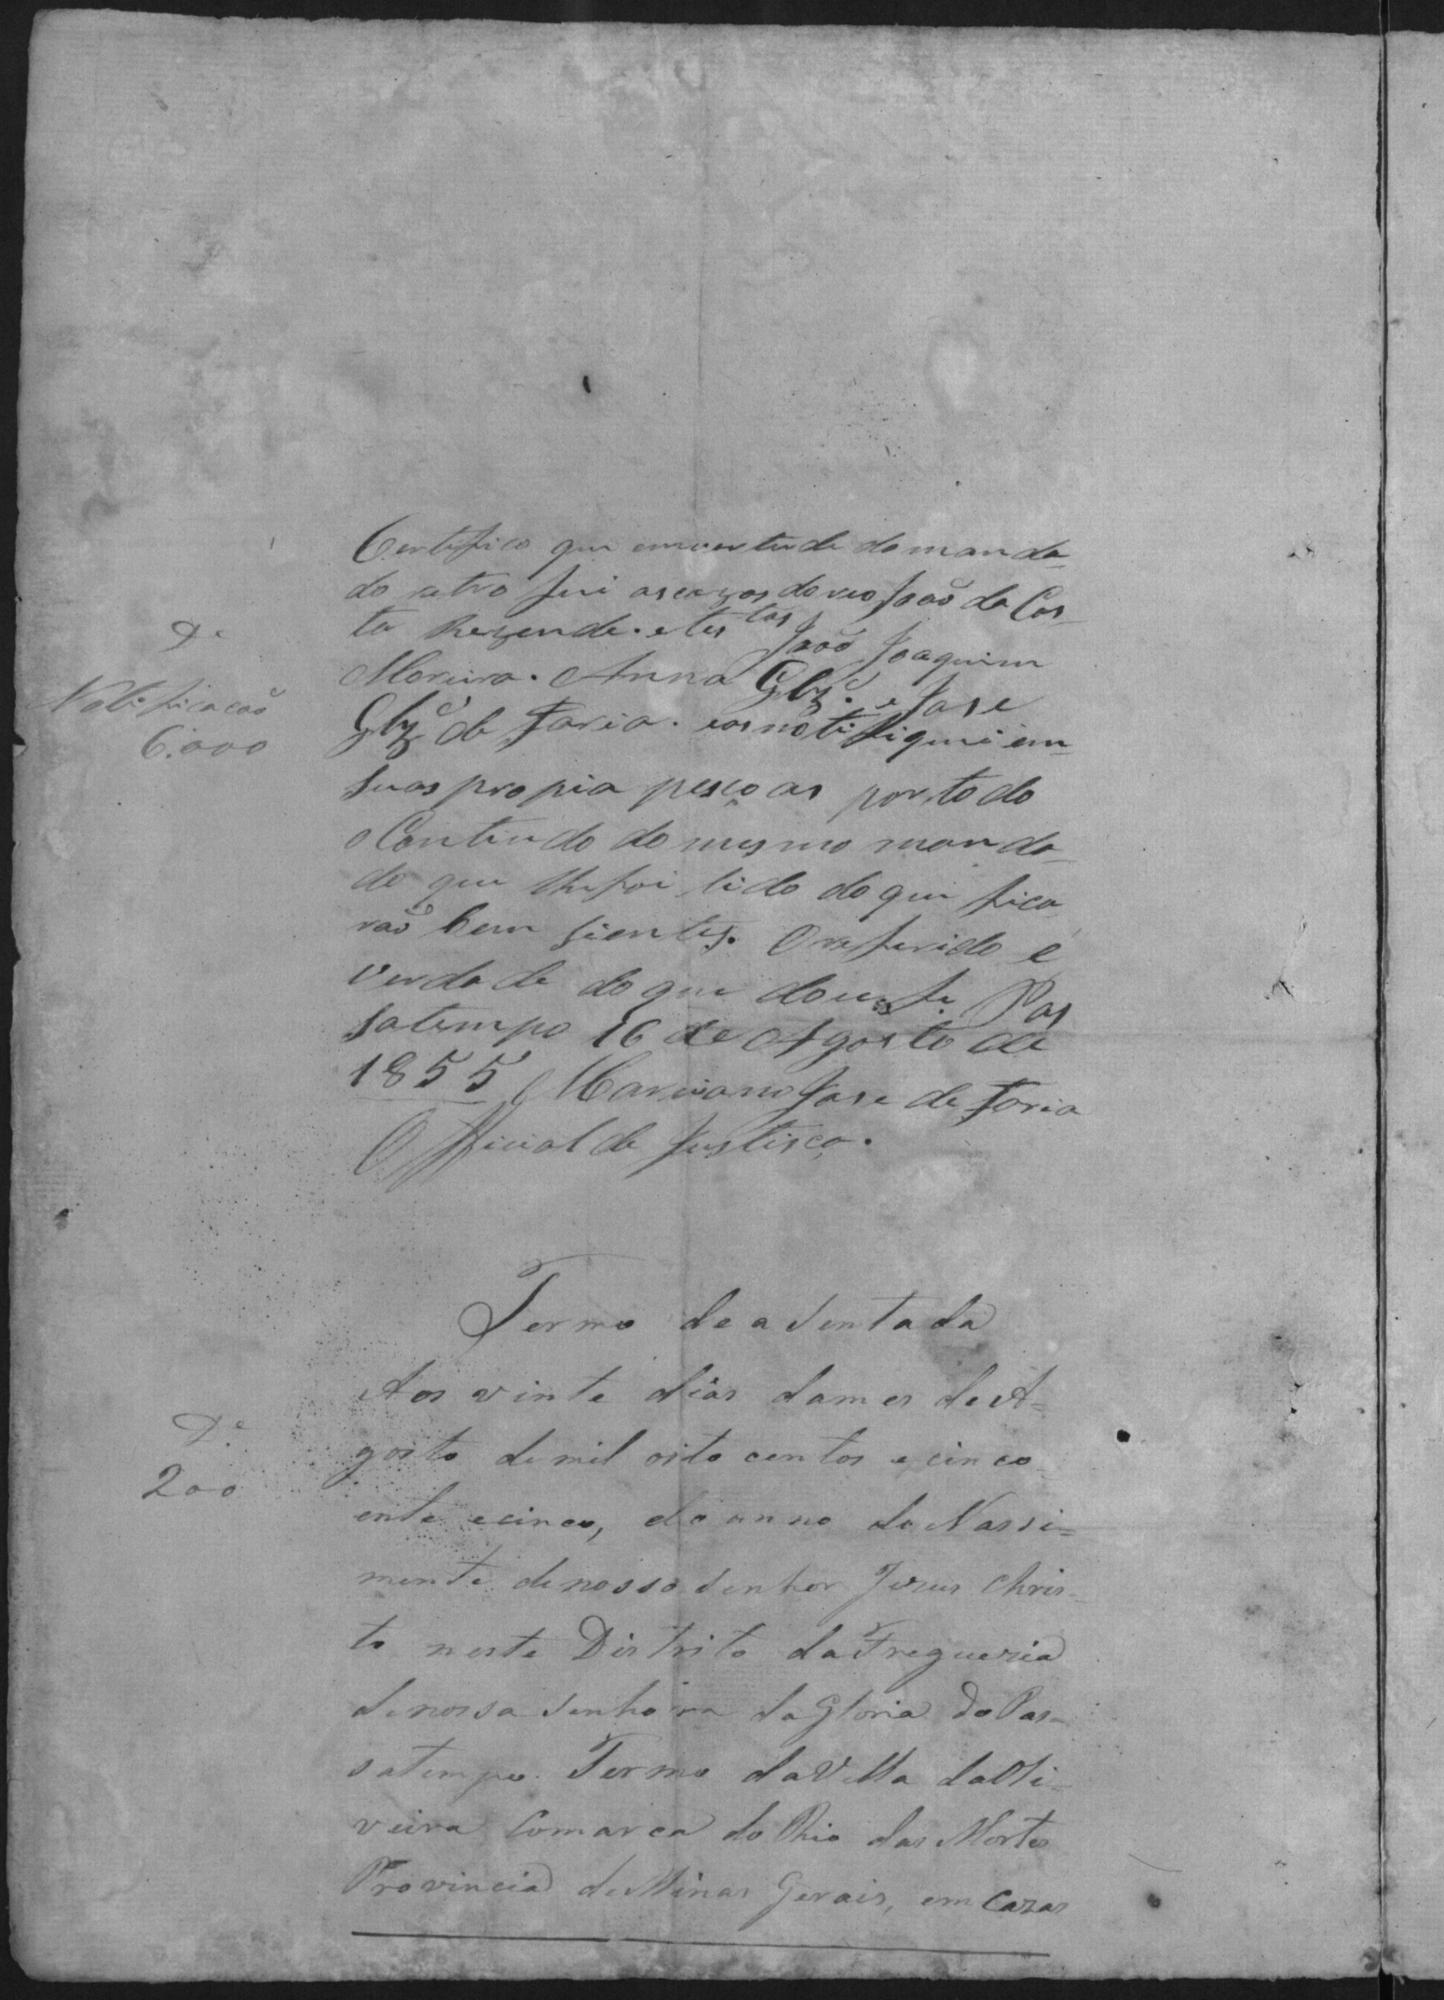 Certifico que emvertude do manda-
do retro fui as cazas do reo João da Cos-
ta Rezende. e tes tas João Joaquim
Moreira. Anna Glz. e Jose
Glz de Faria. e os notifiquei em
suas propia pescoas por todo
o Contiudo do mesmo manda-
do que lhe foi lido do que fica
rão bem sientes. O referido é
verdade do que dou fe. Pas
satempo 16 de Agosto de
1855 Marciano Jose de Faria
Official de Justisca.
De
Notificacão
6.000
Termo de asentada
Aos vinte dias do mes de A=
gosto de mil oito centos e cinco
enta e cinco, do anno do Nassi=
mento de nosso senhor Jezus Chris-
to neste Distrito da Freguezia
de nossa senhora da Gloria do Pas-
satempo Termo da Villa da Oli-
veira Comarca do Rio das Mortes
Provincia de Minas Gerais, em Cazas
De
200